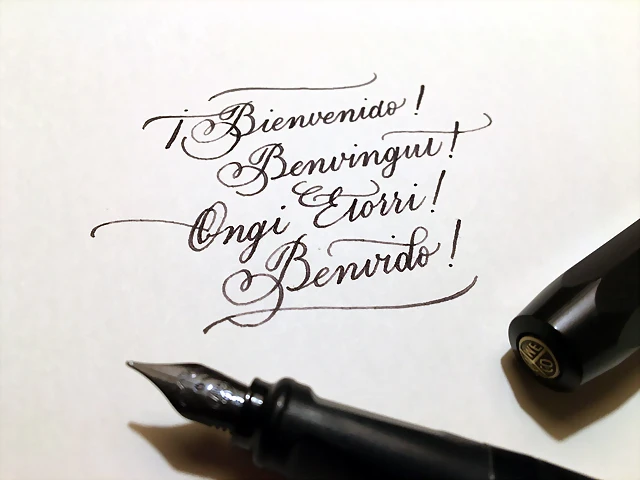 ¡Bienvenido!
Benvingut!
Ongi Etorri!
Benvido!
KAWECO